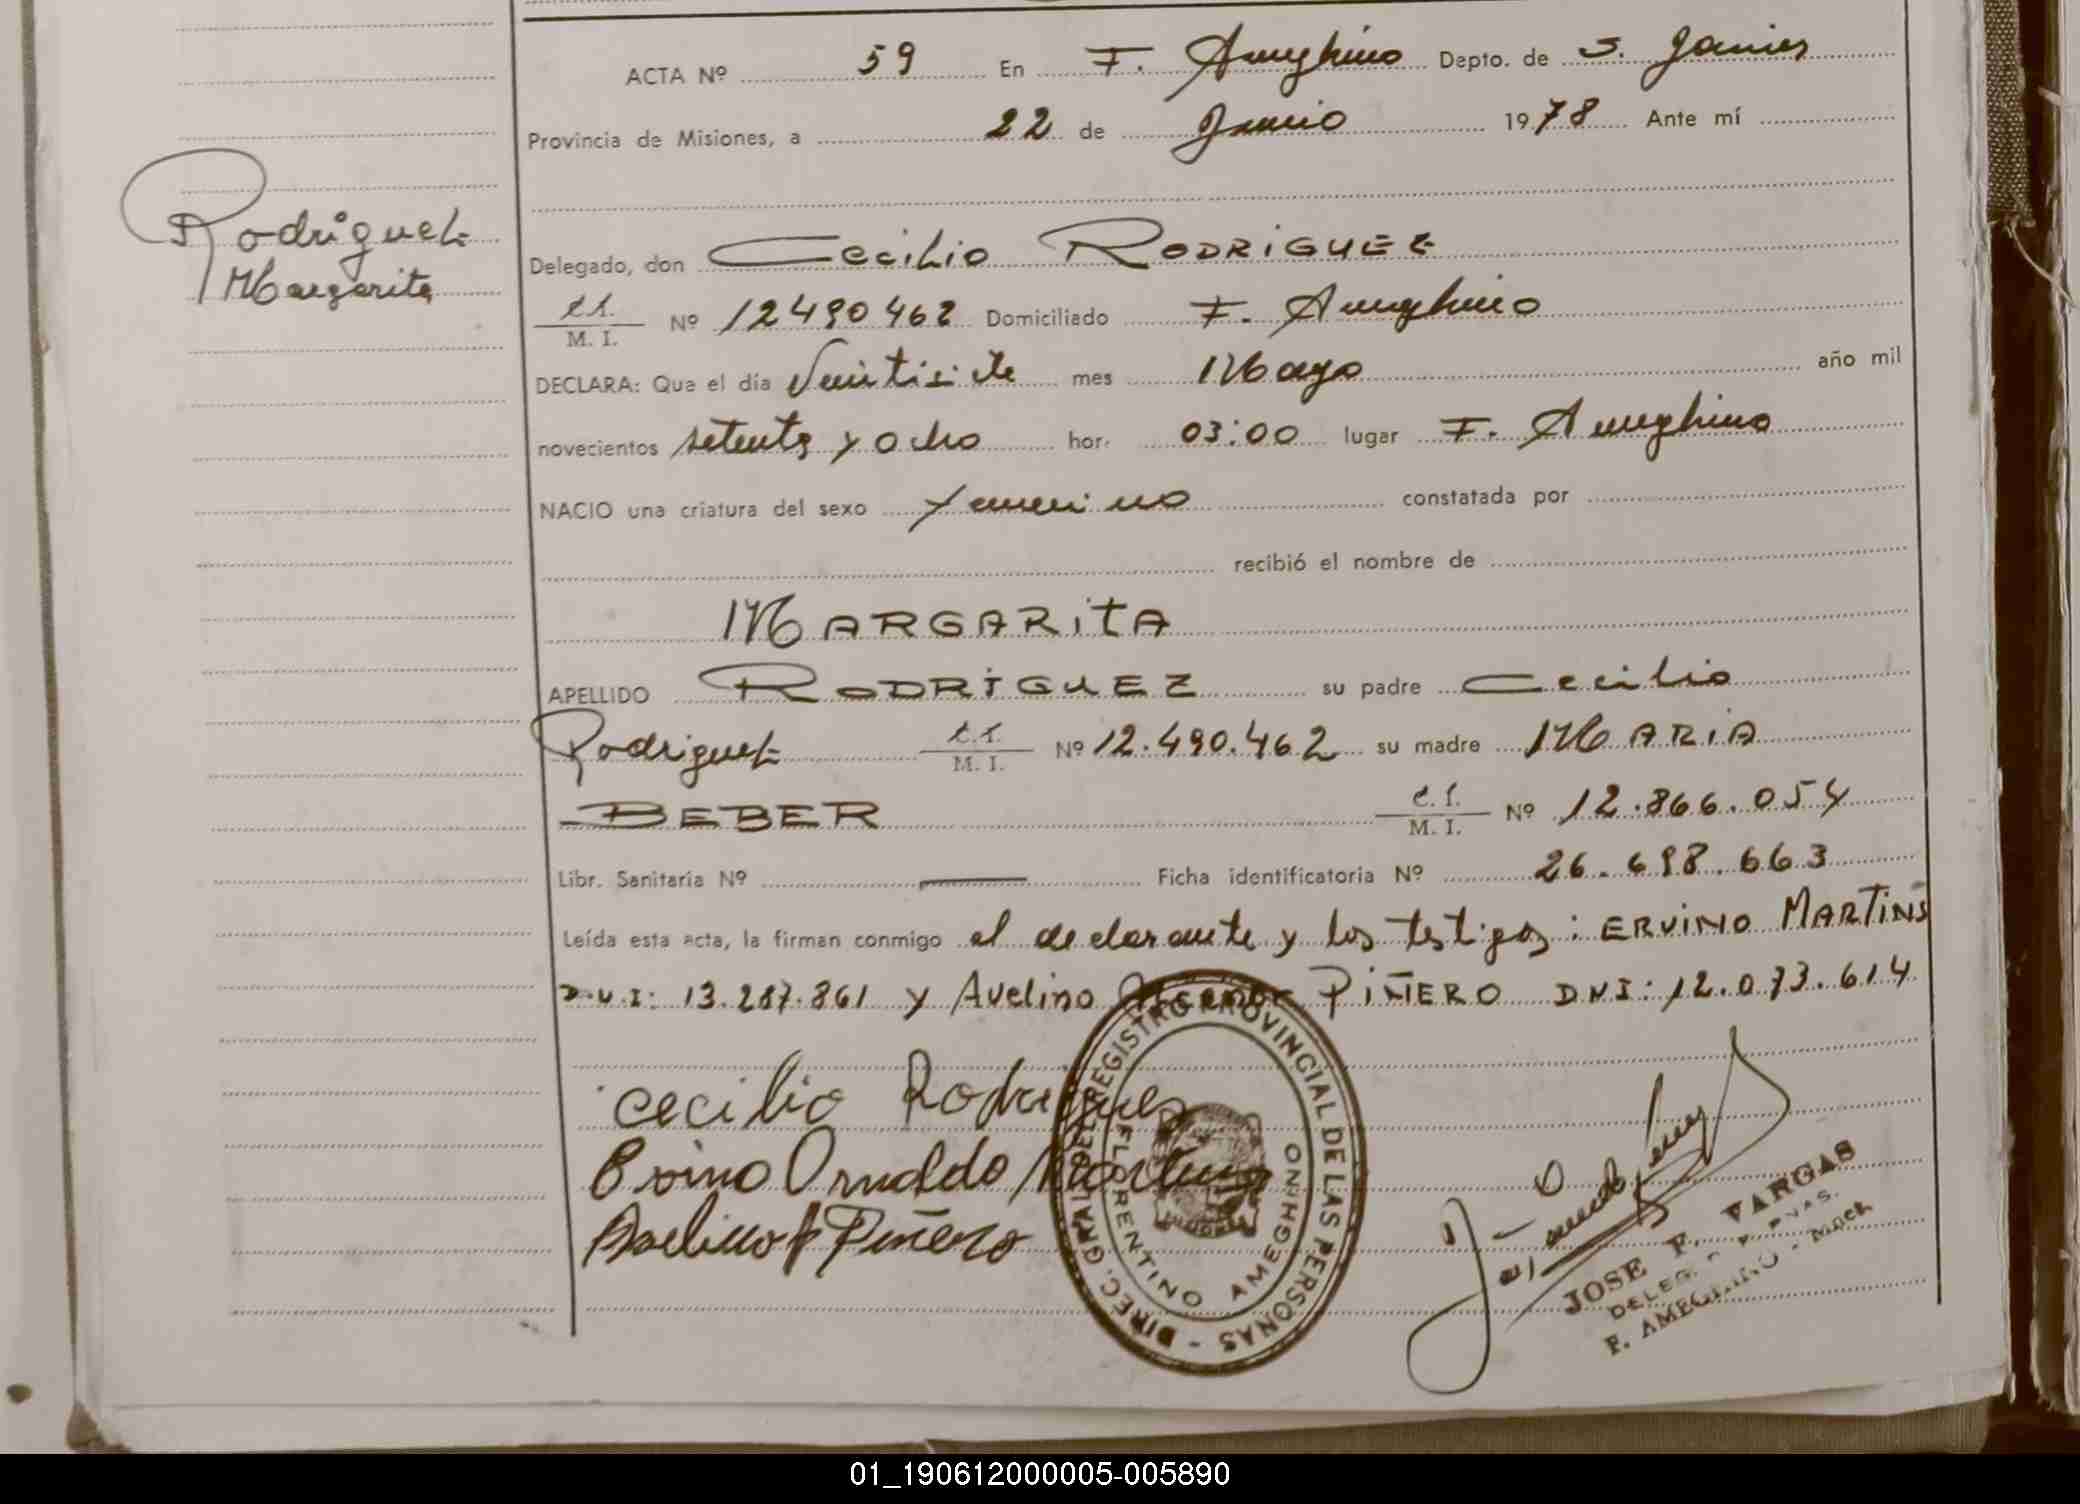 ACTA Nº 59 En F. Ameghino Depto. de S. Javier
Provincia de Misiones, a 22 de Junio 1978 Ante mí
Rodriguez
Margarita
Delegado, don Cecilio RODRIGUEZ
C.I.
M. I. Nº 12490462 Domiciliado F. Ameghino
DECLARA: Que el día Veintisiete mes Mayo año mil
novecientos setenta y ocho hor. 03:00 lugar F. Ameghino
NACIO una criatura del sexo femenino constatada por
recibió el nombre de
MARGARITA
APELLIDO RODRIGUEZ su padre Cecilio
Rodriguez C.I.
M. I. Nº 12.490.462 su madre MARIA
BEBER C.I.
M. I. Nº 12.866.054
Libr. Sanitaria Nº — Ficha identificatoria Nº 26.698.663
Leída esta acta, la firman conmigo el declarante y los testigos: ERVINO MARTINS
D.N.I: 13.287.861 y Avelino PIÑERO DNI: 12.073.614
Cecilio Rodrigues
Ervino Arnaldo Martins
Avelino Piñero
DIREC. GRAL. DEL REGISTRO PROVINCIAL DE LAS PERSONAS -
FLORENTINO AMEGHINO
JOSE F. VARGAS
F. AMEGHINO
01_190612000005-005890